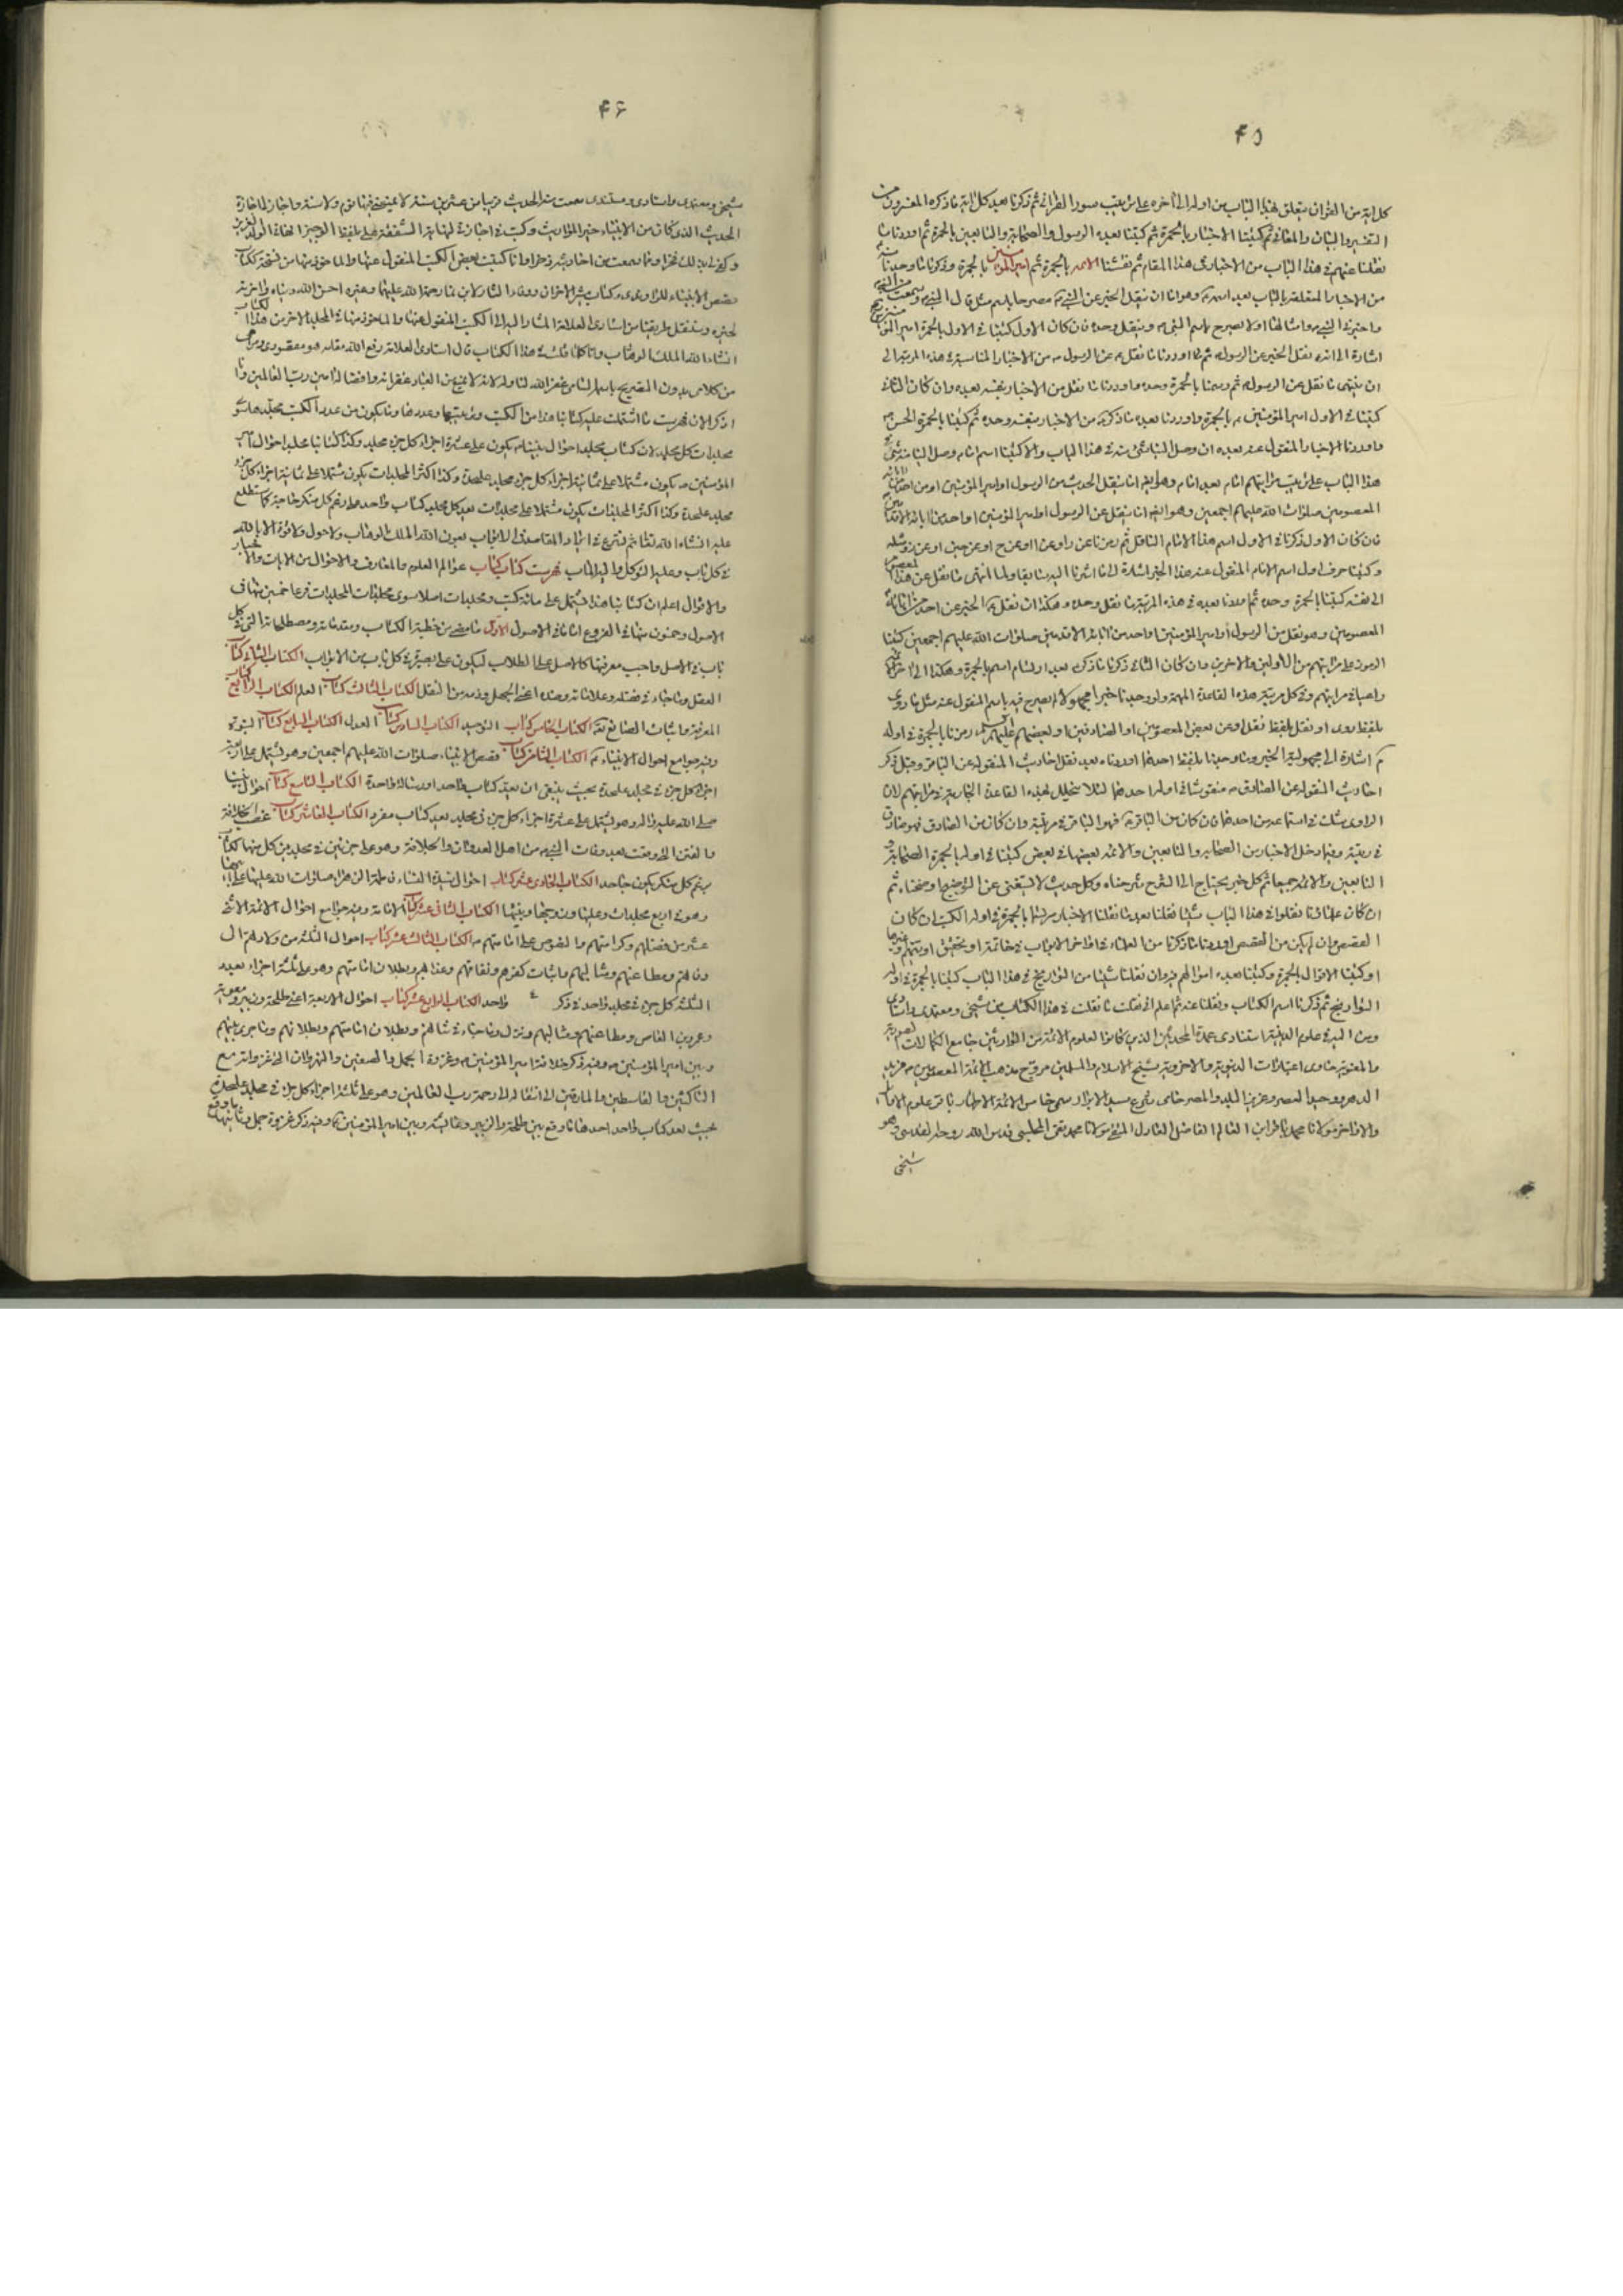 ۴۵
كل اية من القران يتعلق بهذا الباب من اوله الى اخره على ترتيب سور القران ثم ذكرنا بعد كل اية ما ذكره المفسرون من
التفسير والبيان والمعاني ثم كتبنا الاخبار بالحمرة ثم كتبنا بعده الرسول والصحابة والتابعين بالحمرة ثم اوردنا ما
نقلنا عنهم في هذا الباب من الاخبار في هذا المقام ثم نقشنا الائمة بالحمرة ثم امير المؤمنين بالحمرة وذكرنا ما وجدنا منه
من الاخبار المتعلقة بالباب بعد اسمه وهو اما ان ينقل الخبر عن النبي مصرحا باسم مثل قال النبي وسمعت من النبي
واخبرني النبي وامثالها او لا يصرح باسم النبي وينقل وحده فان كان الاول كتبنا في الاول بالحمرة امير
اشارة الى انه نقل الخبر عن الرسول ثم اوردنا ما نقله عن الرسول من الاخبار المناسبة في هذه المرتبة الى
ان ينتهي ما نقل عن الرسول ثم رسمنا بالحمرة وحده واوردنا ما نقل من الاخبار بنفسه بعده وان كان الثاني
كتبنا في الاول امير المؤمنين بالحمرة واوردنا بعده ما ذكره من الاخبار بنفسه وحده ثم كتبنا بالحمرة الحسن
واوردنا الاخبار المنقول عنه بعده ان وصل الينا شئ منه في هذا الباب والا كتبنا اسم امام وصل الينا منه شئ
هذا الباب على ترتيب مراتبهم امام بعد امام وهو ايضا اما ينقل الحديث من الرسول او امير المؤمنين او من
المعصومين صلوات الله عليهم اجمعين وهو ايضا اما ينقل عن الرسول او امير المؤمنين او واحد من ابائه
فان كان الاول ذكرنا في الاول اسم هذا الامام الناقل ثم رمزنا عن را وعن ا او عن ح او عن حين او عن
وكتبنا حرف اول اسم الامام المنقول عنه هذا الخبر اشارة الى ما اشرنا اليه سابقا ولما انتهى ما نقل عن هذا المعصوم
الى نفسه كتبنا بالحمرة وحده ثم اوردنا بعده في هذه المرتبة ما نقل وحده وهكذا ان نقل الخبر عن احد من ابائه
المعصومين وهو نقل من الرسول او امير المؤمنين او واحد من ابائه الاقدمين صلوات الله عليهم اجمعين كتبنا
الرموز على مراتبهم من الاولين والاخرين وان كان الثاني ذكرنا ما ذكره بعد ارتسام اسمه بالحمرة وهكذا الى
راعينا في مراتبهم وفي كل مرتبة هذه القاعدة المهمة ولو وجدنا خبرا مجهولا لم يصرح فيه باسم المنقول عنه مثل ما روي
بلفظ روى او نقل بلفظ نقل او عن بعض المعصومين او الصادقين او لبعضهم عليهم السلام رمزنا بالحمرة في اوله
م اشارة الى مجهولية الخبر وما وجدنا بلفظ احدهما اوردناه بعد نقل احاديث المنقولة عن الباقر وقبل ذكر
احاديث المنقولة عن الصادق منقوشا في اوله احدهما لئلا يتخلل بهذه القاعدة الجارية في مراتبهم لان
الراوي شك في استماعه من احدهما فان كان من الباقر فهو الباقر في مرتبته وان كان من الصادق فهو صادق
في رتبته وقد ادخل الاخبار من الصحابة والتابعين والائمة بعضها في بعض كتبنا في اوله بالحمرة الصحابة و
التابعين والائمة جميعا ثم كل خبر يحتاج الى الشرح شرحناه وكل حديث لا يستغنى عن التوضيح اوضحناه ثم
ان كان علمائنا نقلوا في هذا الباب شيئا نقلنا بعد ما نقلنا الاخبار مرتبا بالحمرة في اوله الكتب ان كان
القصص وان لم يكن من القصص اوردنا ما ذكرنا من العلماء في اواخر الابواب في خاتمة او تحقيق او تتميم وغيرها
او كتبنا الاقوال بالحمرة وكتبنا بعده اقوالهم فيه وان نقلنا شيئا من التواريخ في هذا الباب كتبنا بالحمرة في اوله
التواريخ ثم ذكرنا اسم الكتاب ونقلنا عنه ثم اعلم اني نقلت ما نقلت في هذا الكتاب عن شيخي ومعتمدي واستادي
ومن اليه في علوم الدينية استنادي عمدة المحدثين الذين كانوا لعلوم الائمة من الوارثين جامع الكمالات الصورية
والمعنوية حاوي اعتبارات الدنيوية والاخروية شيخ الاسلام والمسلمين مروج مذهب الائمة المعصومين فريد
الدهر ووحيد العصر وعزيز البلد والمصر حامي شرع سيد الابرار سمي خامس الائمة الاطهار باقر علوم الاوائل
والاواخر مولانا محمد باقر ابن العالم الفاضل العادل المتقي مولانا محمد تقي المجلسي قدس الله روحه القدسي وهو
شيخي
۴۶
شيخي ومعتمدي واستادي ومستندي سمعت منه الحديث قريبا من عشرين سنة لا يمنعني فيها نوم ولا سنة واجاز لي اجازة
الحديث الذي كان من الانبياء خير المواريث وكتب في اجازة لهاية الشفقة علي بلفظه الوجيز
وكفى لي بذلك فخرا وما سمعت من احاديثه ذخرا وانا كتبت بعض الكتب المنقول عنها والماخوذ منها من نسخة ككتاب
قصص الانبياء للراوندي وكتاب بشر الاخزان وفاء الثار لابن نما رحمة الله عليهما وغيره احسن الله دنياه واخرته
لخيره ونقل طريقنا من استاري العلامة المشار اليه الى الكتب المنقول عنها والماخوذ منها في المجلد الاخر من هذا الكتاب
انشاء الله الملك الوهاب وانا كلما قلت في هذا الكتاب قال استادي العلامة رفع الله مقامه هو مقصودي ومرجعي
من كلامي بدون التصريح باسم السامي غفر الله لنا وله لانه لا يمنع من العباد غفرانه وافضاله امين رب العالمين وانا
اذكر الان فهرست ما اشتملت عليه كتابنا هذا من الكتب وترتيبها وعددها وما يكون من عدد الكتب مجلده هو
مجلدات كل مجلد لان كتاب مجلد احوال نبينا يكون على عشرة اجزاء كل جزء مجلد وكذا كتابنا مجلد احوال امير
المؤمنين يكون مشتملا على ثمانية اجزاء كل جزء مجلد علىحدة وكذا اكثر المجلدات يكون مشتملا على ثمانية اجزاء كل جزء
مجلد علىحدة وكذا اكثر المجلدات يكون مشتملا على مجلدات بعد كل مجلد كتاب واحد على رغم كل منكر جاحد كما تطلع
عليه انشاء الله تعالى ثم نشرع في ايراد المقاصد والابواب بعون الله الملك الوهاب ولا حول ولا قوة الا بالله
في كل باب وعليه التوكل واليه المآب فهرست كتاب كتاب عوالم العلوم والمعارف والاحوال من الايات والاخبار
والاقوال اعلم ان كتابنا هذا يشتمل على مائة كتب ومجلدات اصلا سوى مجلدات المجلدات فرعا خمسين منها في
الاصول وخمسون منها في الفروع اما ما في الاصول الاول ما مضى من خطبة الكتاب ومقدماته ومصطلحاته التي في كل
باب في الاصل واجب معرفتها كالاصل على الطلاب ليكون على بصيرة في كل باب من الابواب الكتاب الثاني كتاب
العقل وما جاء في فضله وعلاماته وضده اعني الجهل وذمه من النقل الكتاب الثالث كتاب العلم الكتاب الرابع كتاب
المعرفة واثبات الصانع الكتاب الخامس كتاب التوحيد الكتاب السادس كتاب العدل الكتاب السابع كتاب النبوة
وفيه جوامع احوال الانبياء الكتاب الثامن كتاب قصص الانبياء صلوات الله عليهم اجمعين وهو يشتمل على اربعة
اجزاء كل جزء في مجلد علىحدة بحيث ينبغي ان يعد كتاب واحد او رسالة واحدة الكتاب التاسع كتاب احوال نبينا
صلى الله عليه واله وهو يشتمل على عشرة اجزاء كل جزء في مجلد يعد كتاب مفرد الكتاب العاشر كتاب غصب الخلافة
والفتن التي وقعت بعد وفات النبي من اهل العدوان والجلافة وهو على جزئين في مجلدين كل منها كتاب
برغم كل منكر يكون جاحدا الكتاب الحادي عشر كتاب احوال سيدة النساء فاطمة الزهراء صلوات الله عليها وعلى ابيها
وهو في اربع مجلدات وعليها وزوجها وبنيها الكتاب الثاني عشر كتاب الامامة وفيه جوامع احوال الائمة الاثني
عشر من فضلهم وكرامتهم والنصوص على امامتهم الكتاب الثالث عشر كتاب احوال الثلثة من ولادتهم الى
وفاتهم ومطاعنهم ومثالبهم واثبات كفرهم ونفاقهم وعذابهم وبطلان امامتهم وهو على ثلثة اجزاء بعدد
الثلثة كل جزء في مجلد واحد في ذكر واحد الكتاب الرابع عشر كتاب احوال الاربعة اعني طلحة وزبير ومعوية
وعمرو بن العاص ومطاعنهم ومثالبهم ونزل وما جاء في شانهم وبطلان امامتهم وبطلانهم وما جرى بينهم
وبين امير المؤمنين وفيه ذكر خلافة امير المؤمنين وغزوة الجمل والصفين والنهروان التي غزواته مع
الناكثين والقاسطين والمارقين الى انتقاله الى رحمة رب العالمين وهو على ثلثة اجزاء كل جزء في مجلد علىحدة
بحيث يعد كتاب واحد احدها ما وقع بين طلحة والزبير وعايشة وبين امير المؤمنين وفيه ذكر غزوة جمل وثانيها ما وقع